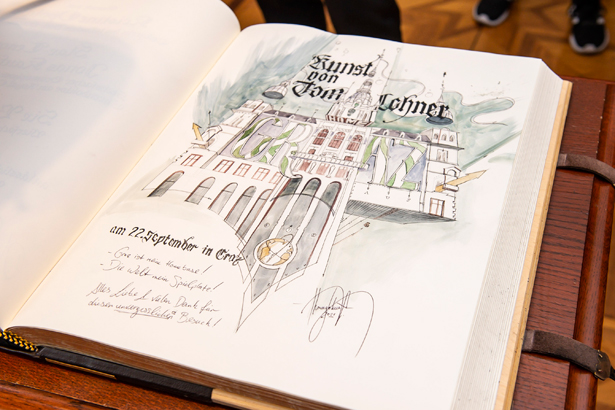 Kunst
von
Tom Lohner
am 22. September in Graz
- Graz ist meine Homebase!
Die Welt mein Spielplatz!
Alles Liebe & vielen Dank für
diesen unvergesslichen Besuch!